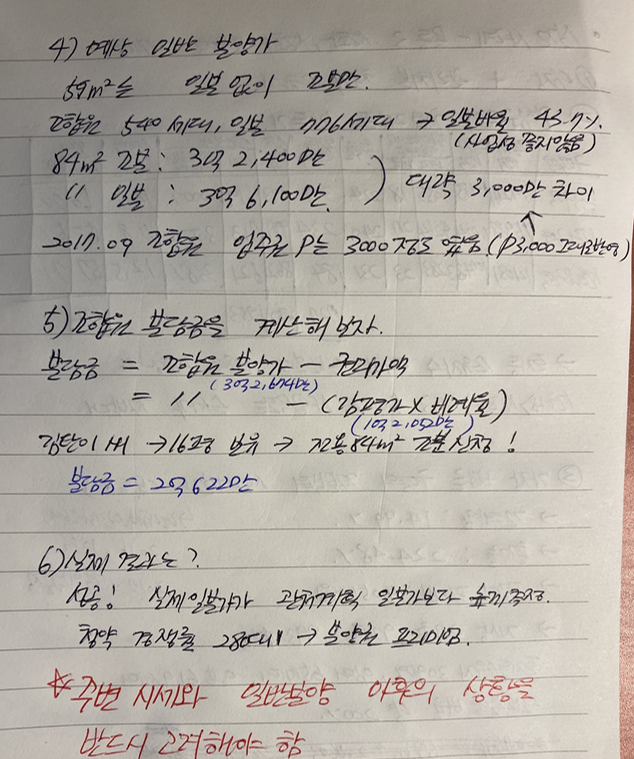 4) 예상 일반 분양가
59m²는 일분 없이 조분만.
조합원 540세대, 일분 776세대 → 일분비율 43.7%.
(사업성 좋지않음)
84m² 조분 : 3억 2,400만
〃 일분 : 3억 6,100만 ) 대략 3,000만 차이
2017.09 조합원 입주권 P는 3000정도 였음. (P3,000 그대로반영)
5) 조합원 분담금을 계산해보자.
분담금 = 조합원 분양가 - 권리가액
(3억2,674만)
= 〃 - (감평가 X 비례율)
(1억2,052만)
김단이 씨 → 16평 보유 → 전용84m² 조분신청!
분담금 = 2억 622만
6) 실제 결과는?
성공! 실제일분가가 관처계획 일분가보다 높게책정.
청약 경쟁률 280대1 → 분양권 프리미엄.
☆ 주변 시세와 일반분양 이후의 상황을
반드시 고려해야 함